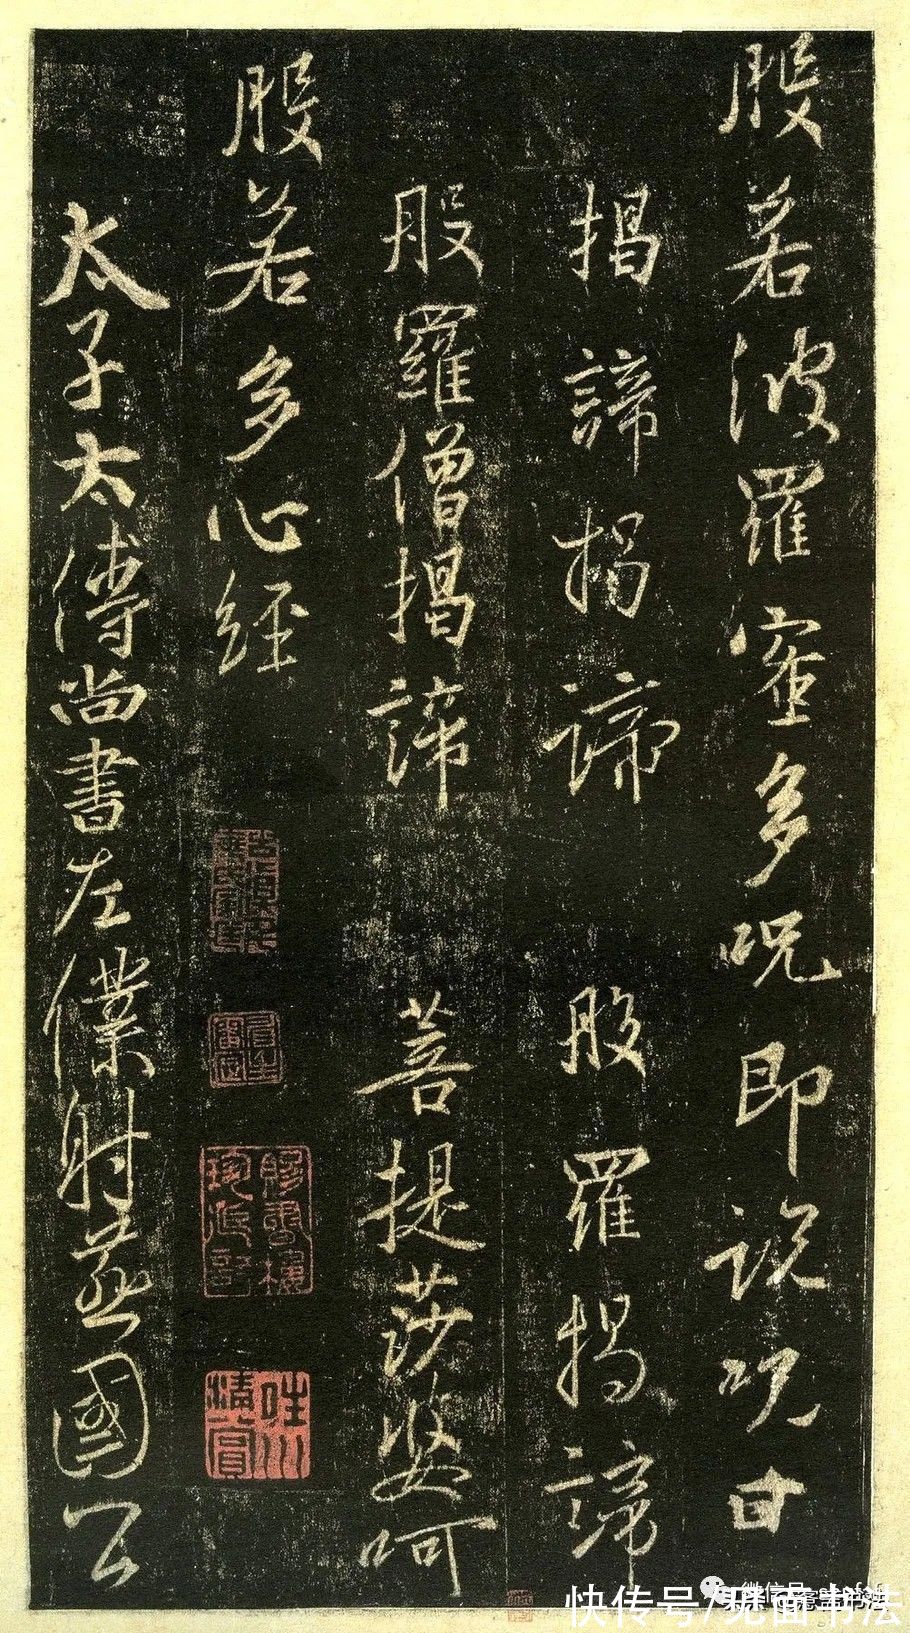 般若波羅蜜多呪即說呪曰
揭諦揭諦 般羅揭諦
般羅僧揭諦 菩提莎婆呵
般若多心經
太子太傅尚書左僕射燕國公
快传号/见面书法
微信号